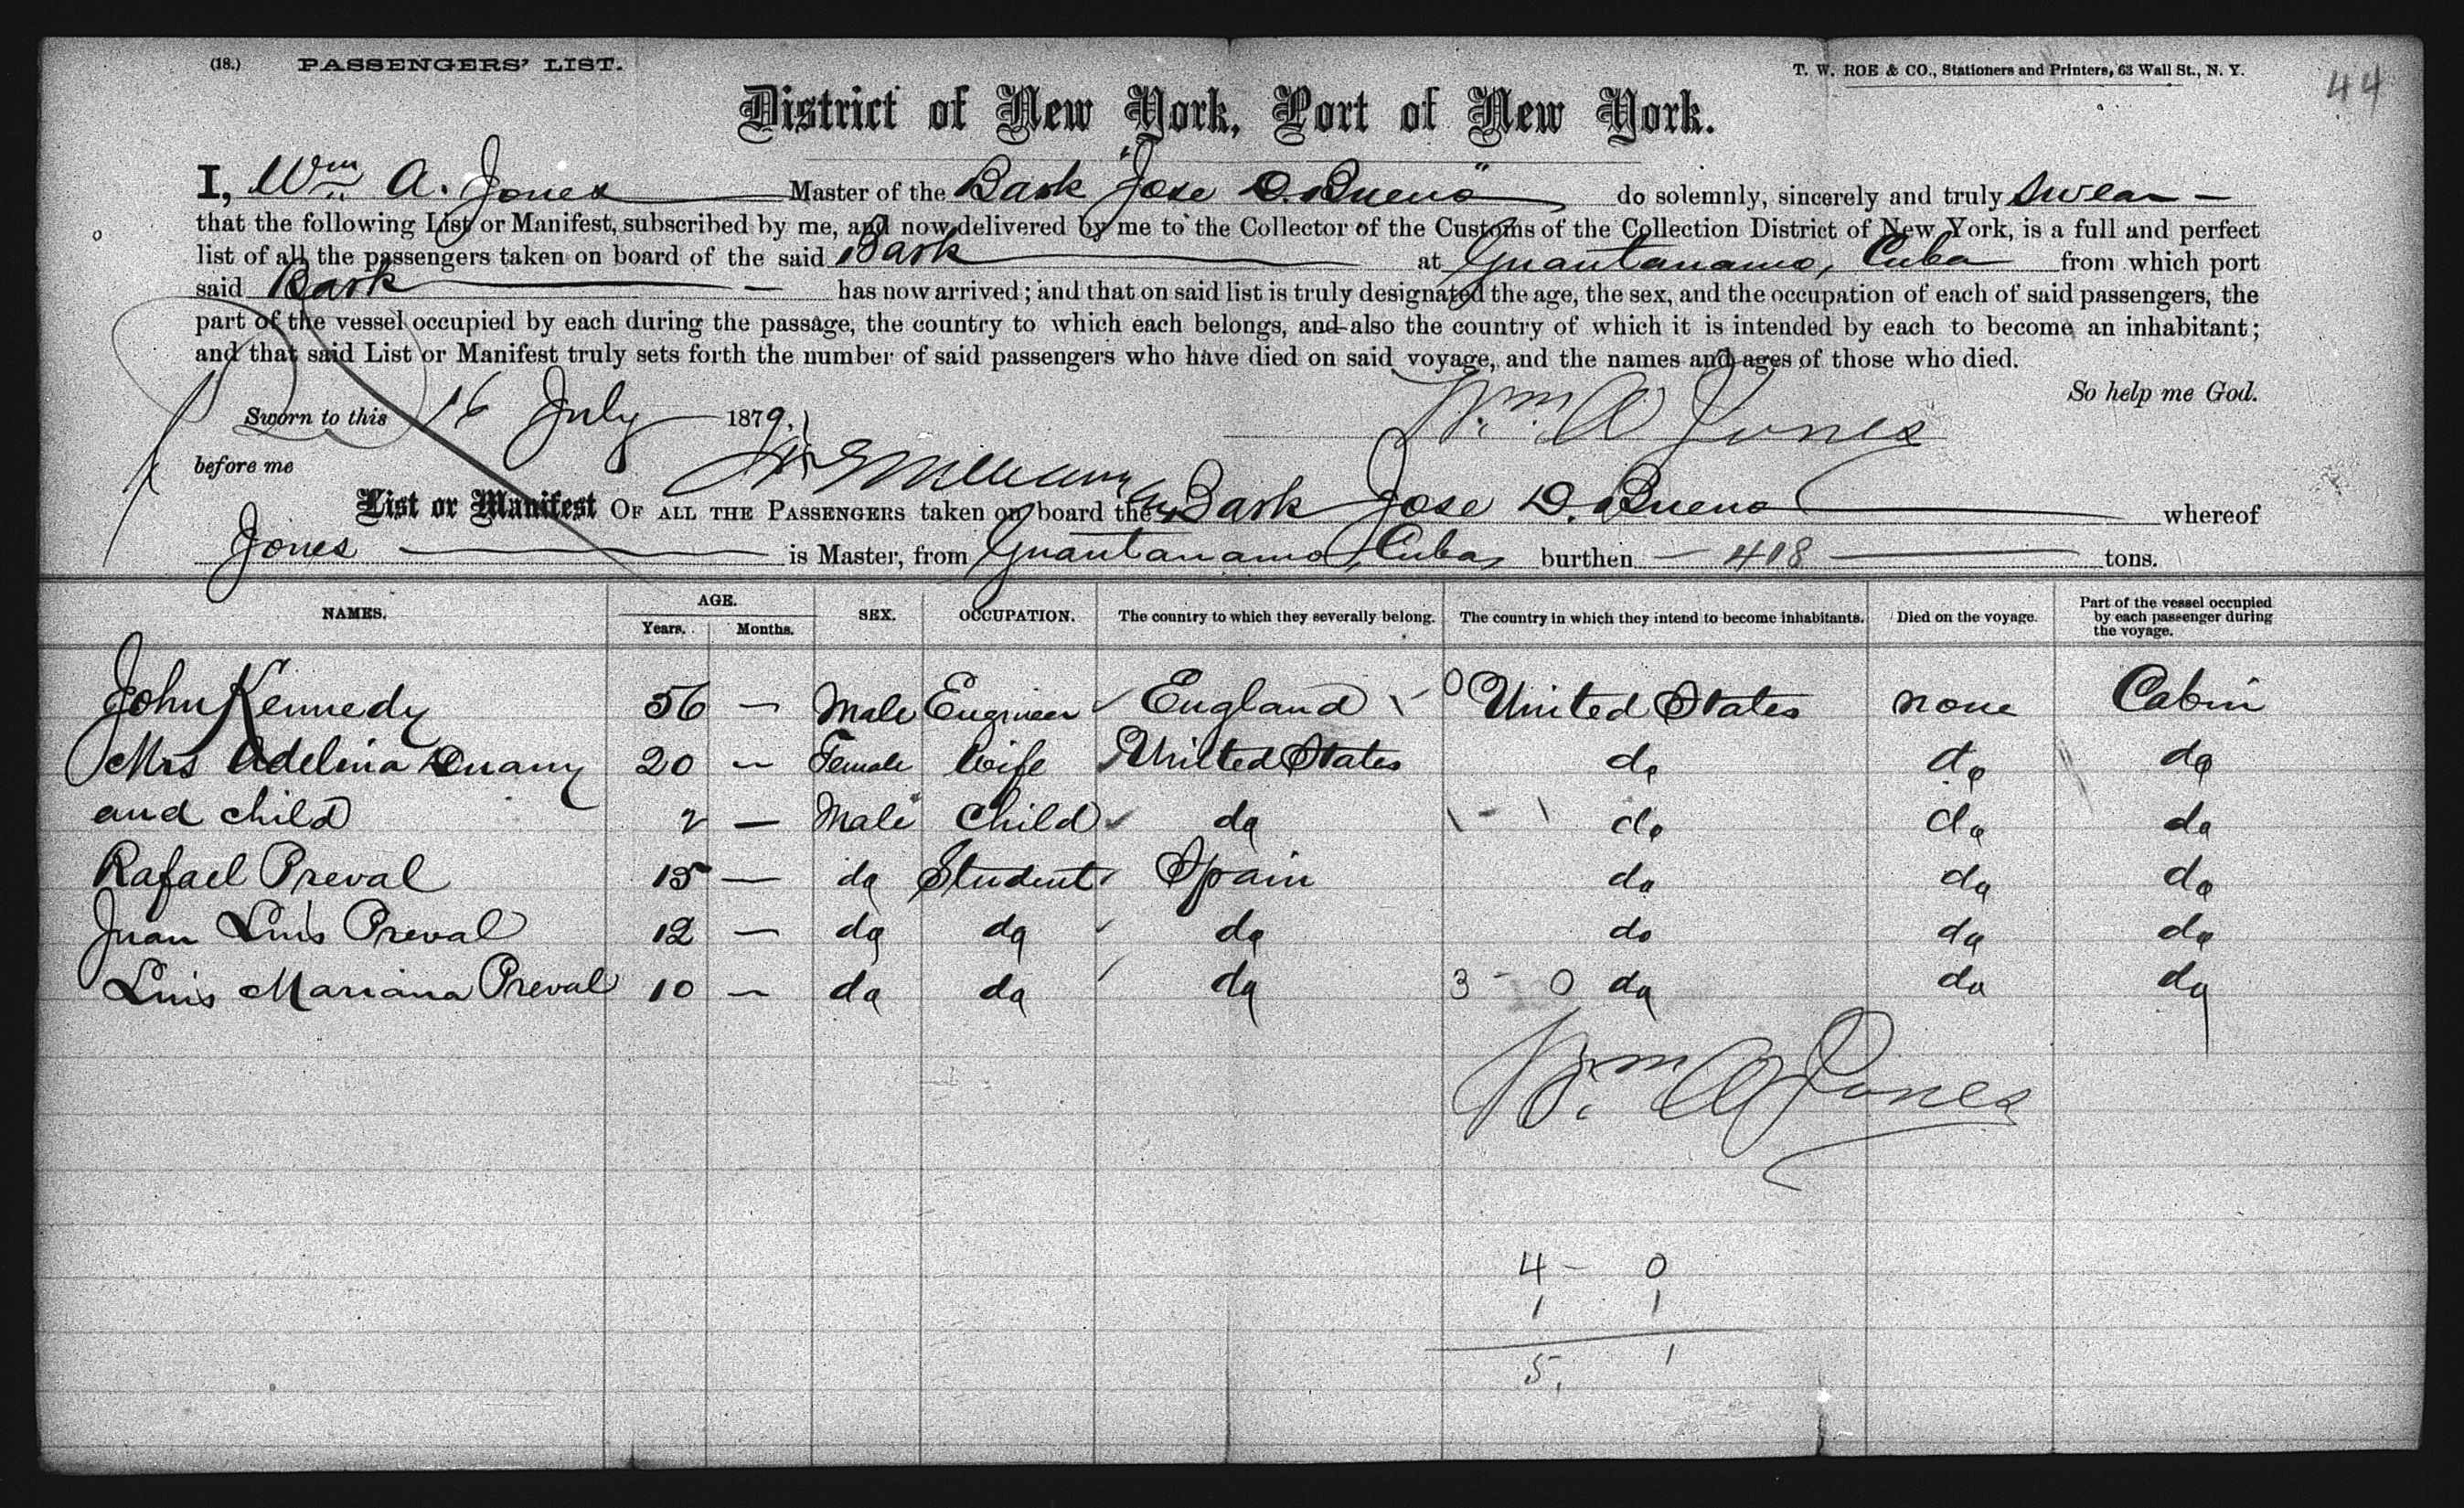 (18.) PASSENGERS' LIST. T. W. ROE & CO., Stationers and Printers, 63 Wall St., N. Y. 44
District of New York, Port of New York.
I, Wm. A. Jones Master of the Bark "Jose D. Bueno" do solemnly, sincerely and truly swear
that the following List or Manifest, subscribed by me, and now delivered by me to the Collector of the Customs of the Collection District of New York, is a full and perfect
list of all the passengers taken on board of the said Bark at Guantanamo, Cuba from which port
said Bark has now arrived; and that on said list is truly designated the age, the sex, and the occupation of each of said passengers, the
part of the vessel occupied by each during the passage, the country to which each belongs, and also the country of which it is intended by each to become an inhabitant;
and that said List or Manifest truly sets forth the number of said passengers who have died on said voyage, and the names and ages of those who died.
So help me God.
Sworn to this 16 July 1879. Wm. A Jones
before me
List or Manifest OF ALL THE PASSENGERS taken on board the Bark Jose D. Bueno whereof
Jones is Master, from Guantanamo, Cuba, burthen 418 tons.
NAMES. AGE. Years. Months. SEX. OCCUPATION. The country to which they severally belong. The country in which they intend to become inhabitants. Died on the voyage. Part of the vessel occupied by each passenger during the voyage.
John Kennedy 56 — Male Engineer England 0 United States none Cabin
Mrs Adelina Duany 20 — Female Wife United States do do do
and child 2 — Male Child do do do do
Rafael Preval 15 — do Student Spain do do do
Juan Luis Preval 12 — do do do do do do
Luis Mariana Preval 10 — do do do 3 - 0 do do do
Wm. A Jones
4 - 0
1 1
5, 1